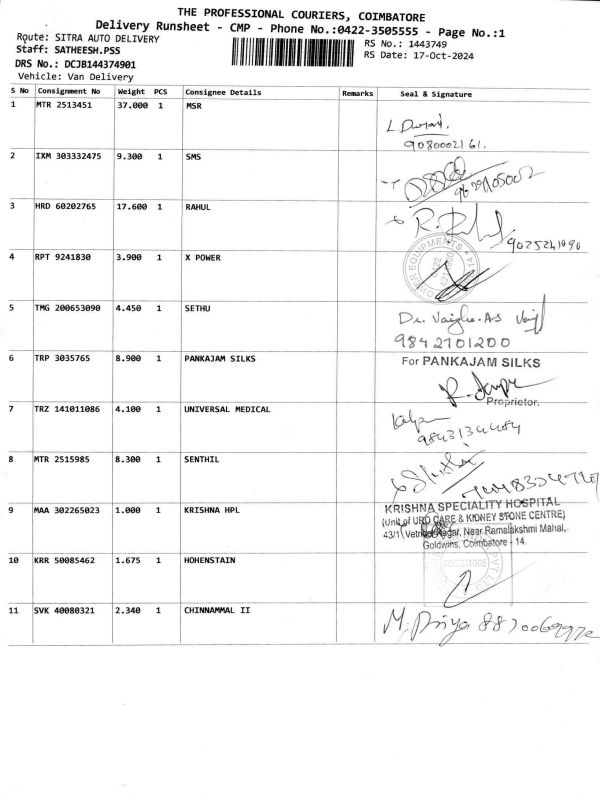 THE PROFESSIONAL COURIERS, COIMBATORE
Delivery Runsheet - CMP - Phone No.:0422-3505555 - Page No.:1
Route: SITRA AUTO DELIVERY
RS No.: 1443749
Staff: SATHEESH.PSS
RS Date: 17-Oct-2024
DRS No.: DCJB144374901
Vehicle: Van Delivery
S No Consignment No Weight PCS Consignee Details Remarks Seal & Signature
1 MTR 2513451 37.000 1 MSR
9080002161.
2 IXM 303332475 9.300 1 SMS
3 HRD 60202765 17.600 1 RAHUL
4 RPT 9241830 3.900 1 X POWER
5 TMG 200653090 4.450 1 SETHU
9842701200
6 TRP 3035765 8.900 1 PANKAJAM SILKS For PANKAJAM SILKS
Proprietor.
7 TRZ 141011086 4.100 1 UNIVERSAL MEDICAL
8 MTR 2515985 8.300 1 SENTHIL
9 MAA 302265023 1.000 1 KRISHNA HPL
KRISHNA SPECIALITY HOSPITAL
(Unit of URO CARE & KIDNEY STONE CENTRE)
43/1, Vetri Nagar, Near Ramalakshmi Mahal,
Goldwins, Coimbatore - 14.
10 KRR 50085462 1.675 1 HOHENSTAIN
COIMBATORE
11 SVK 40080321 2.340 1 CHINNAMMAL II
M. Priya